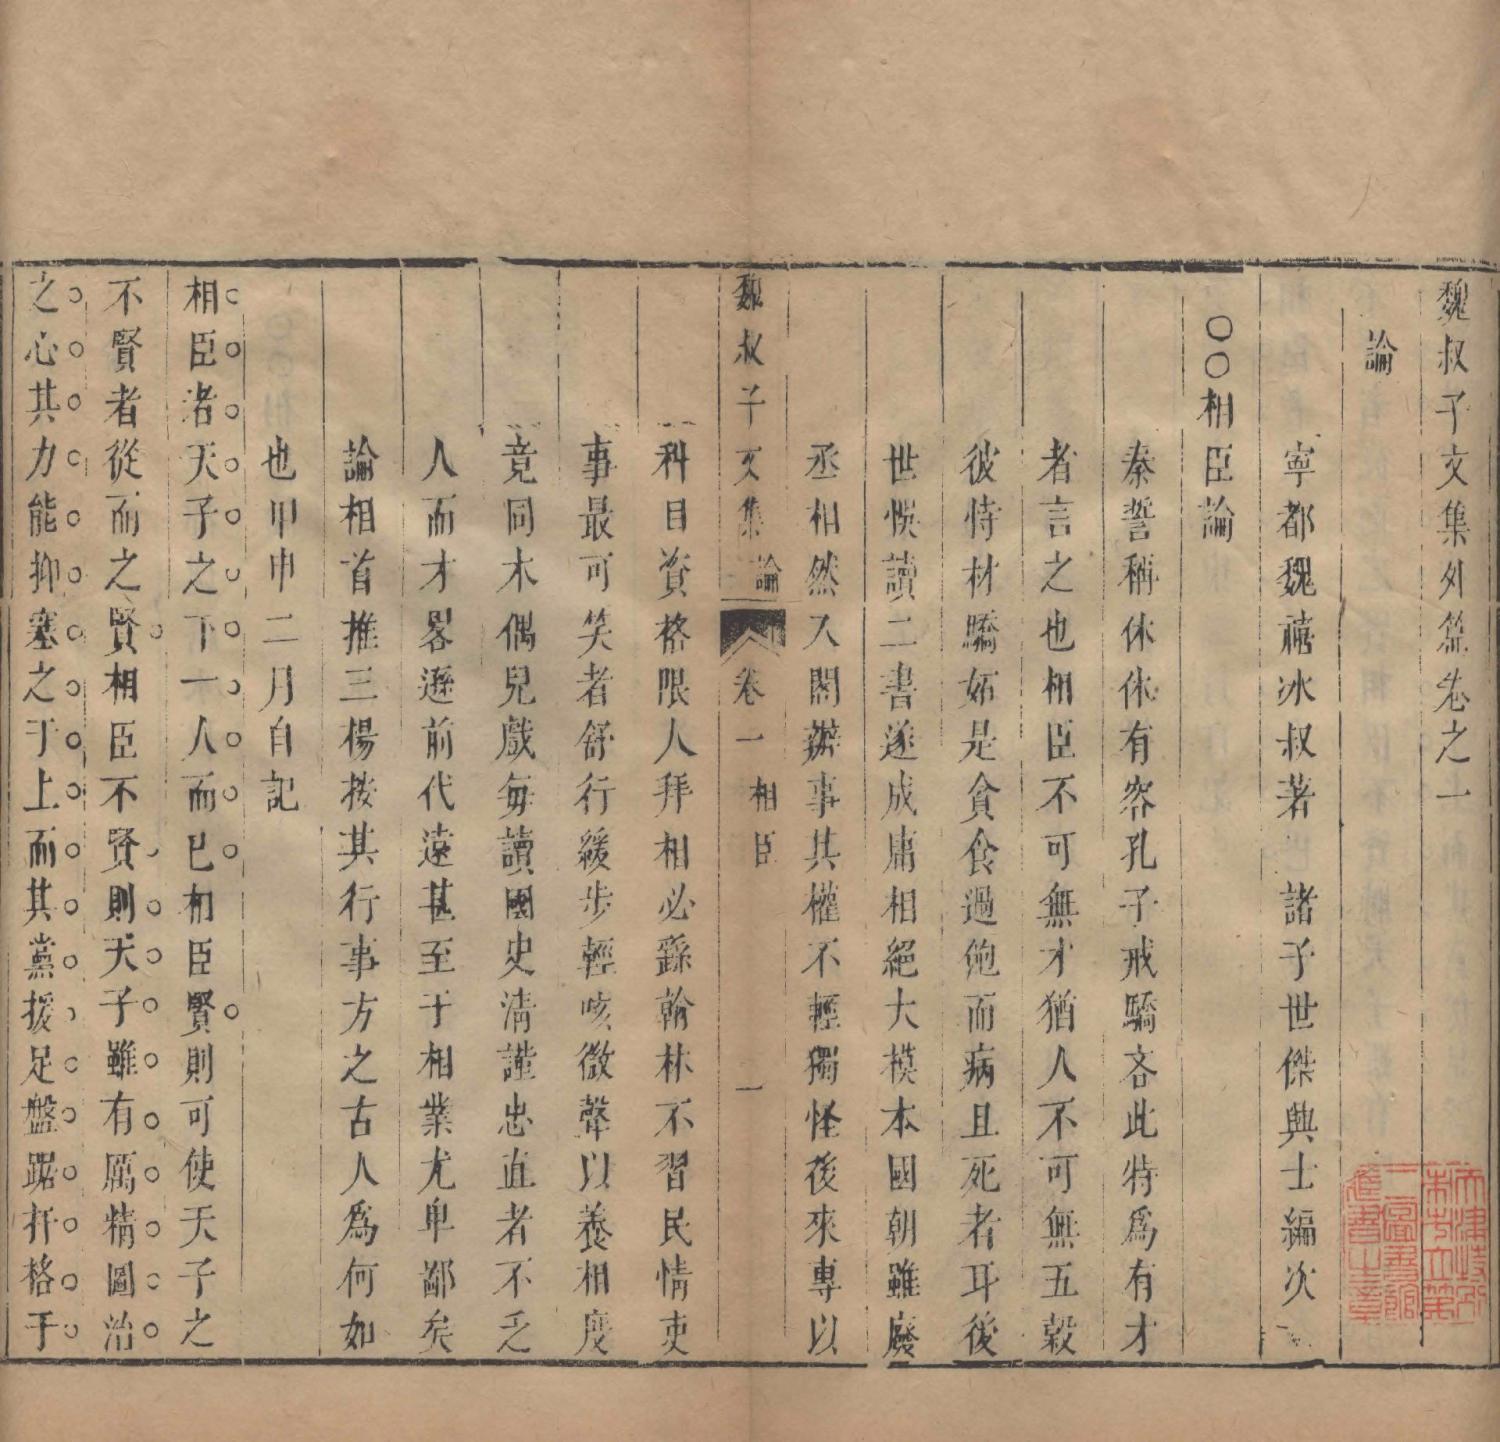 魏叔子文集外篇卷之一
論
寧都魏禧冰叔著 諸子世傑興士編次
〇〇相臣論
秦誓稱休休有容孔子戒驕吝此特爲有才
者言之也相臣不可無才猶人不可無五穀
彼恃材驕妬是貪食過飽而病且死者耳後
世悞讀二書遂成庸相絕大模本國朝雖廢
丞相然入閣辦事其權不輕獨怪後來專以
魏叔子文集 論 卷一 相臣 一
科目資格限人拜相必繇翰林不習民情吏
事最可笑者舒行緩步輕咳微聲以養相度
竟同木偶兒戲每讀國史清謹忠直者不乏
人而才畧遜前代遠甚至于相業尤卑鄙矣
論相首推三楊按其行事方之古人爲何如
也甲申二月自記
相臣者天子之下一人而已相臣賢則可使天子之
不賢者從而之賢相臣不賢則天子雖有厲精圖治
之心其力能抑塞之于上而其黨援足盤踞扞格于
天津特別
市市立第
一圖書館
藏書之章